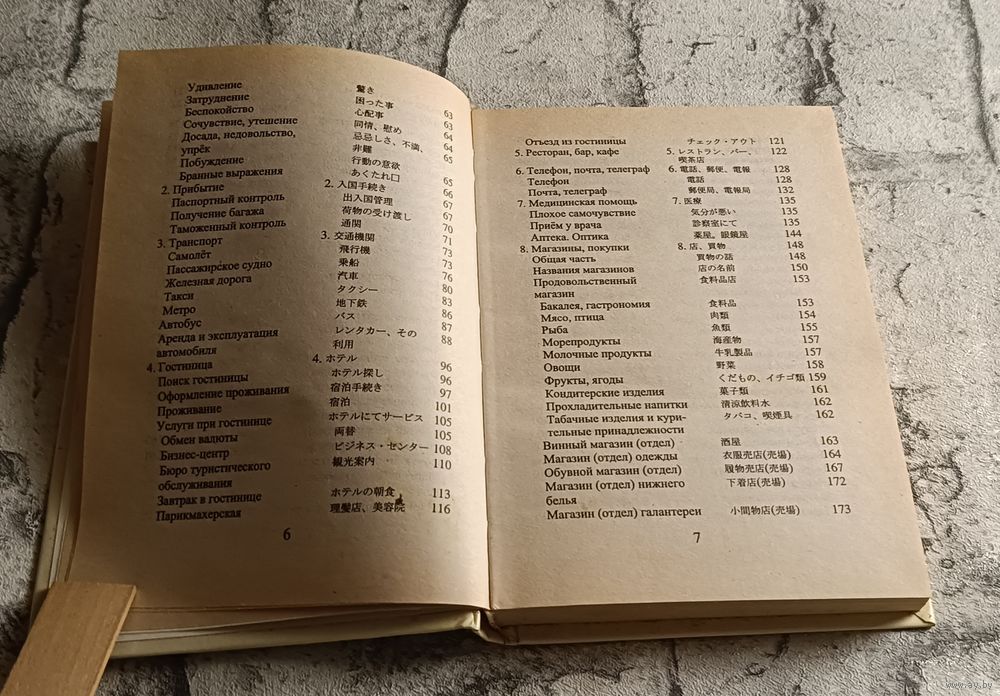 Удивление 驚き 63
Затруднение 困った事 63
Беспокойство 心配事 64
Сочувствие, утешение 同情、慰め 64
Досада, недовольство, 忌忌しさ、不満、 65
упрёк 非難
Побуждение 行動の意欲 65
Бранные выражения あくたれ口 66
2. Прибытие 2. 入国手続き 67
Паспортный контроль 出入国管理 67
Получение багажа 荷物の受け渡し 70
Таможенный контроль 通関 71
3. Транспорт 3. 交通機関 73
Самолёт 飛行機 73
Пассажирское судно 乗船 76
Железная дорога 汽車 80
Такси タクシー 83
Метро 地下鉄 86
Автобус バス 87
Аренда и эксплуатация レンタカー、その 88
автомобиля 利用
4. Гостиница 4. ホテル 96
Поиск гостиницы ホテル探し 96
Оформление проживания 宿泊手続き 97
Проживание 宿泊 101
Услуги при гостинице ホテルにてサービス 105
Обмен валюты 両替 105
Бизнес-центр ビジネス・センター 108
Бюро туристического 観光案内 110
обслуживания
Завтрак в гостинице ホテルの朝食 113
Парикмахерская 理髪店、美容院 116
6
Отъезд из гостиницы チェック・アウト 121
5. Ресторан, бар, кафе 5. レストラン、バー、 122
喫茶店
6. Телефон, почта, телеграф 6. 電話、郵便、電報 128
Телефон 電話 128
Почта, телеграф 郵便局、電報局 132
7. Медицинская помощь 7. 医療 135
Плохое самочувствие 気分が悪い 135
Приём у врача 診察室にて 135
Аптека. Оптика 薬屋。眼鏡屋 144
8. Магазины, покупки 8. 店、買物 148
Общая часть 買物の話 148
Названия магазинов 店の名前 150
Продовольственный 食料品店 153
магазин
Бакалея, гастрономия 食料品 153
Мясо, птица 肉類 154
Рыба 魚類 155
Морепродукты 海産物 157
Молочные продукты 牛乳製品 157
Овощи 野菜 158
Фрукты, ягоды くだもの、イチゴ類 159
Кондитерские изделия 菓子類 161
Прохладительные напитки 清涼飲料水 162
Табачные изделия и кури- タバコ、喫煙具 162
тельные принадлежности
Винный магазин (отдел) 酒屋 163
Магазин (отдел) одежды 衣服売店(売場) 164
Обувной магазин (отдел) 履物売店(売場) 167
Магазин (отдел) нижнего 下着店(売場) 172
белья
Магазин (отдел) галантереи 小間物店(売場) 173
7
www.ay.by